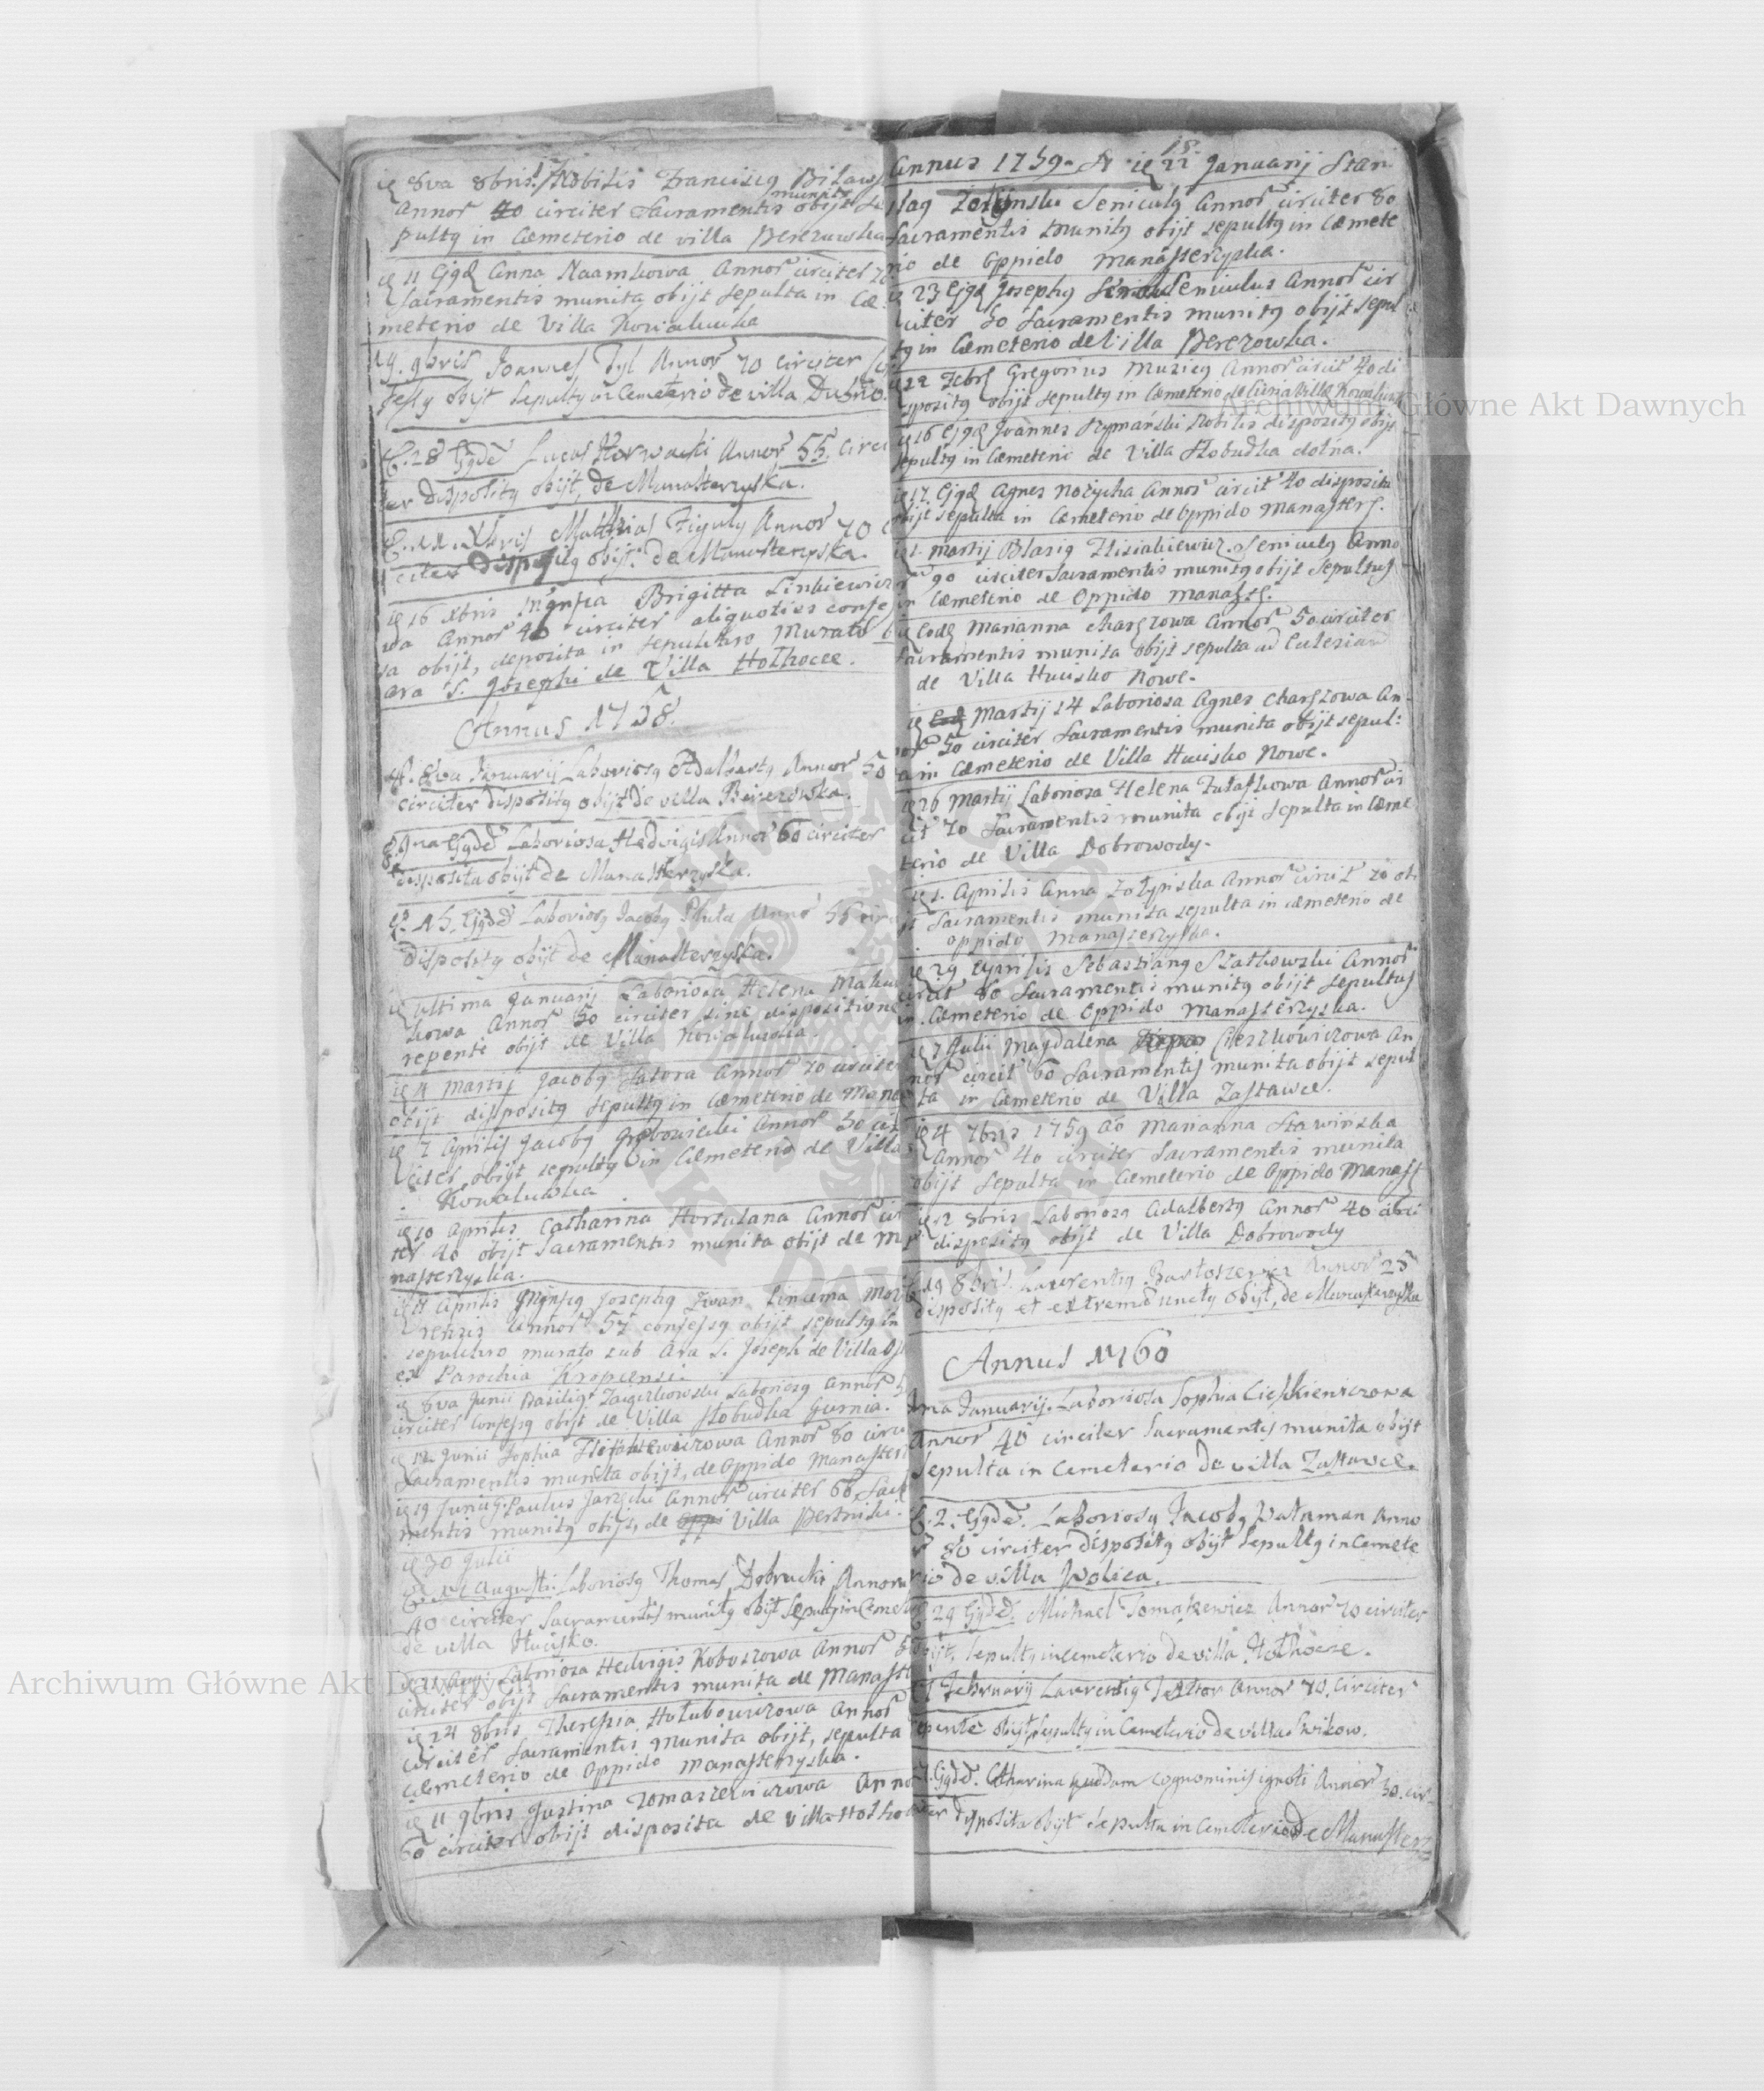 8va 8bris Nobilis Franciscq Bilaws
munitq
Annor 40 circiter Sacramentis obijt Se
pultq in Cæmeterio de villa Berezowska
11 Ejqd Anna Naamkowa Annor circiter 70
Sacramentis munita obijt Sepulta in Cæ
meterio de Villa Kowaluwka
19. 9bris Joannes Tyl Annor 70 circiter
fessq obijt Sepultq in Cemeterio de villa Dubno
28 Ejqde Lucas Horwacki Annor 55. Circi
ter dispositq obijt, de Manasterzyska.
Xbris Matthias Figulq Annor 70
citer dispositq obijt. de Manasterzyska.
16 Xbris Mgnfca Brigitta Linkiewicz
wa Annor 40 circiter aliquoties confes
sa obijt, deposita in sepulchro Murato
Ara S. Josephi de Villa Hothocze.
Annus 1758.
8va Januarij Laboriosq Adalbertq Annor 50
circiter dispositq obijt de villa Berezowska.
9na Ejqde Laboriosa Hedvigis Annor 60 circiter
disposita obijt de Manasterzyska.
15. Ejqde Laboriosq Jacobq Pluta Annor 55 circi
dispositq obijt de Manasterzyska.
ultima Januarij Laboriosa Helena Maku
kowa Annor 50 circiter sine dispositione
repente obijt de Villa Kowaluwka.
4 Martij Jacobq Satora Annor 70 circiter
obijt dispositq Sepultq in Cæmeterio de Manas
7 Aprilis Jacobq Grzbowiecki Annor 50 cir
citer obijt sepultq in Cæmeterio de Villa
Kowaluwka
10 Aprilis Catharina Horsulana Annor cir
ter 40 obijt Sacramentis munita obijt de M
nasterzyska.
11 Aprilis Mgnfcq Josephq Iwan
rensis Annor 57 confessq obijt sepultq in
sepulchro murato sub Ara S. Joseph de Villa
ex Parochia Kropcensi
8va Junii Basiliq Zagurkowski Laboriosq Annor
circiter Confessq obijt de Villa Słobudka Gurnia.
12 Junii Sophia Annor 80 circi
Sacramentis munita obijt, de Oppido Manasteri
19 Junij. Paulus Jarzcki Annor circiter 60 Sacr
mentis munitq obijt, de Villa Bertniki.
30 Julii
Augusti. Laboriosq Thomas Dobrucki Annor
40 circiter Sacramentis munitq obijt Sepultq in Cemeter
de villa Hucisko.
Aug. Laboriosa Hedvigis Koboszowa Annor
circiter obijt Sacramentis munita de Manast
24 8bris Theressia Hołubowiczowa Annor
circiter Sacramentis munita obijt, sepulta
cæmeterio de Oppido Manasterzyska.
11 9bris Justina Tomaszewiczowa Anno
60 circiter obijt disposita de villa Hotho
Annus 1759. A 22 Januarij Stani
18.
slaq Seniculq Annor circiter 80
Sacramentis munitq obijt sepultq in Cæmete
rio de Oppido Manasterzyska.
23 Ejqd Josephq Seniculus Annor cir
citer 50 Sacramentis munitq obijt sepul
tq in Cæmeterio de Villa Berezowska.
22 Febr Gregorius Muzicq Annor circit 40 di
spositq obijt sepultq in Cæmeterio de Curia Villæ Kowaluwk
16 Ejqd Joannes Rymański Nobilis dispositq obijt
sepultq in Cæmeterio de Villa Słobudka dolna.
17. Ejqd Agnes Nożycka Annor circit 40 disposita
obijt sepulta in Cæmeterio de Oppido Manasters.
1. Martij Blasiq Zlisiakiewicz. Seniculq Anno
90 circiter Sacramentis munitq obijt Sepultus
in Cæmeterio de Oppido Manast.
Eodq Marianna Charszowa Annor 50 circiter
Sacramentis munita obijt sepulta ad Eclesiam
de Villa Hucisko Nowe.
Martij 14 Laboriosa Agnes Charszowa An
nor 50 circiter Sacramentis munita obijt sepul:
ta in Cæmeterio de Villa Hucisko Nowe.
26 Martij Laboriosa Helena Annor cir
cit 70 Sacramentis munita obijt Sepulta in Cæme
terio de Villa Dobrowody.
1. Aprilis Anna Annor circit 70 ob
ijt Sacramentis munita sepulta in cæmeterio de
oppido Manasterzyska.
29 Aprilis Sebastianq Szatkowski Annor
circit 80 Sacramentis munitq obijt Sepultus
in Cæmeterio de Oppido Manasterzyska.
7 Julii Magdalena Cieszkowiczowa An
nor circit 60 Sacramentis munita obijt sepul
ta in Cæmeterio de Villa Zastawce.
4 7bris 1759 Ao Marianna Sławińska
Annor 40 circiter Sacramentis munita
obijt Sepulta in Cæmeterio de Oppido Manast
12 8bris Laboriosq Adalbertq Annor 40 circi
dispositq obijt de Villa Dobrowody
19 8bris. Laurentiq Bartoszewicz Annor 25
dispositq et extremo unctq obijt, de Manasterzyska
Annus 1760
Januarij. Laboriosa Sophia Cieszkiewiczowa
Annor 40 circiter Sacramentis munita obijt
Sepulta in Cemeterio de villa Zastawce.
2. Ejqde. Laboriosq Jacobq Wataman Anno
r 80 circiter dispositq obijt Sepultq in Cemete
rio de villa Wolica.
29 Ejqde. Michael Tomakewicz Annor 70 circiter
obijt, Sepultq in Cemeterio de villa Hothocze.
Februarij Laurentiq Annor 70. Circiter
repente obijt Sepultq in Cemeterio de villa Cwikow.
Ejqde. Catharina quædam cognominis ignoti Annor 50. cir
citer disposita obijt Sepulta in Cemeterio de Manasterz
Archiwum Główne Akt Dawnych
Archiwum Główne Akt Dawnych